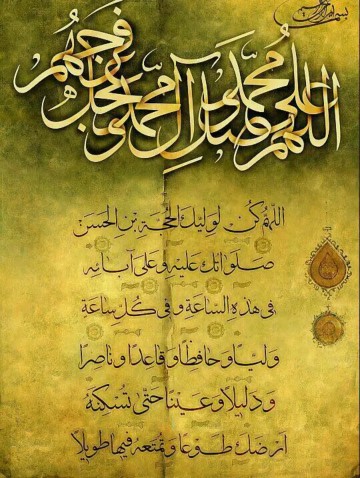 بسم الله الرحمن الرحیم
اللهم صل علی محمد و آل محمد و عجل فرجهم
اللهُمَّ كُنْ لِوَلِيِّكَ الْحُجَّةِ بْنِ الْحَسَنِ
صَلَواتُكَ عَلَيْهِ وَعَلى آبائِهِ
في هذِهِ السّاعَةِ وَفي كُلِّ ساعَةٍ
وَلِيّاً وَحافِظاً وَقاعِداً وَناصِراً
وَدَليلاً وَعَيْناً حَتّى تُسْكِنَهُ
اَرْضَكَ طَوْعاً وَتُمَتِّعَهُ فيها طَويلاً